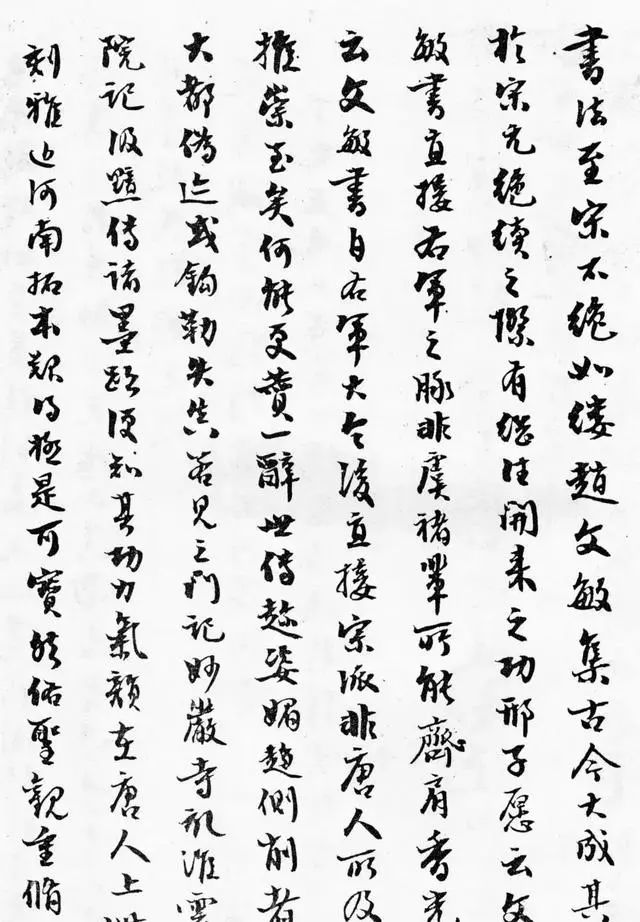 書法至宋不絶如縷趙文敏集古今大成其
於宋元絶續之際有繼往開来之功邢子愿云文
敏書直接右軍之脉非虞褚輩所能齊肩香光
云文敏書自右軍大令後直接宗派非唐人所及
推崇至矣何能更賛一辭世傳趙姿媚趙側削者
大都偽迹或鈎勒失真若見三門記妙嚴寺記淮雲
院記汲黯傳諸墨跡便知其功力氣韻在唐人上
刻雅近河南拓本難得極是可寶於佑聖觀重脩